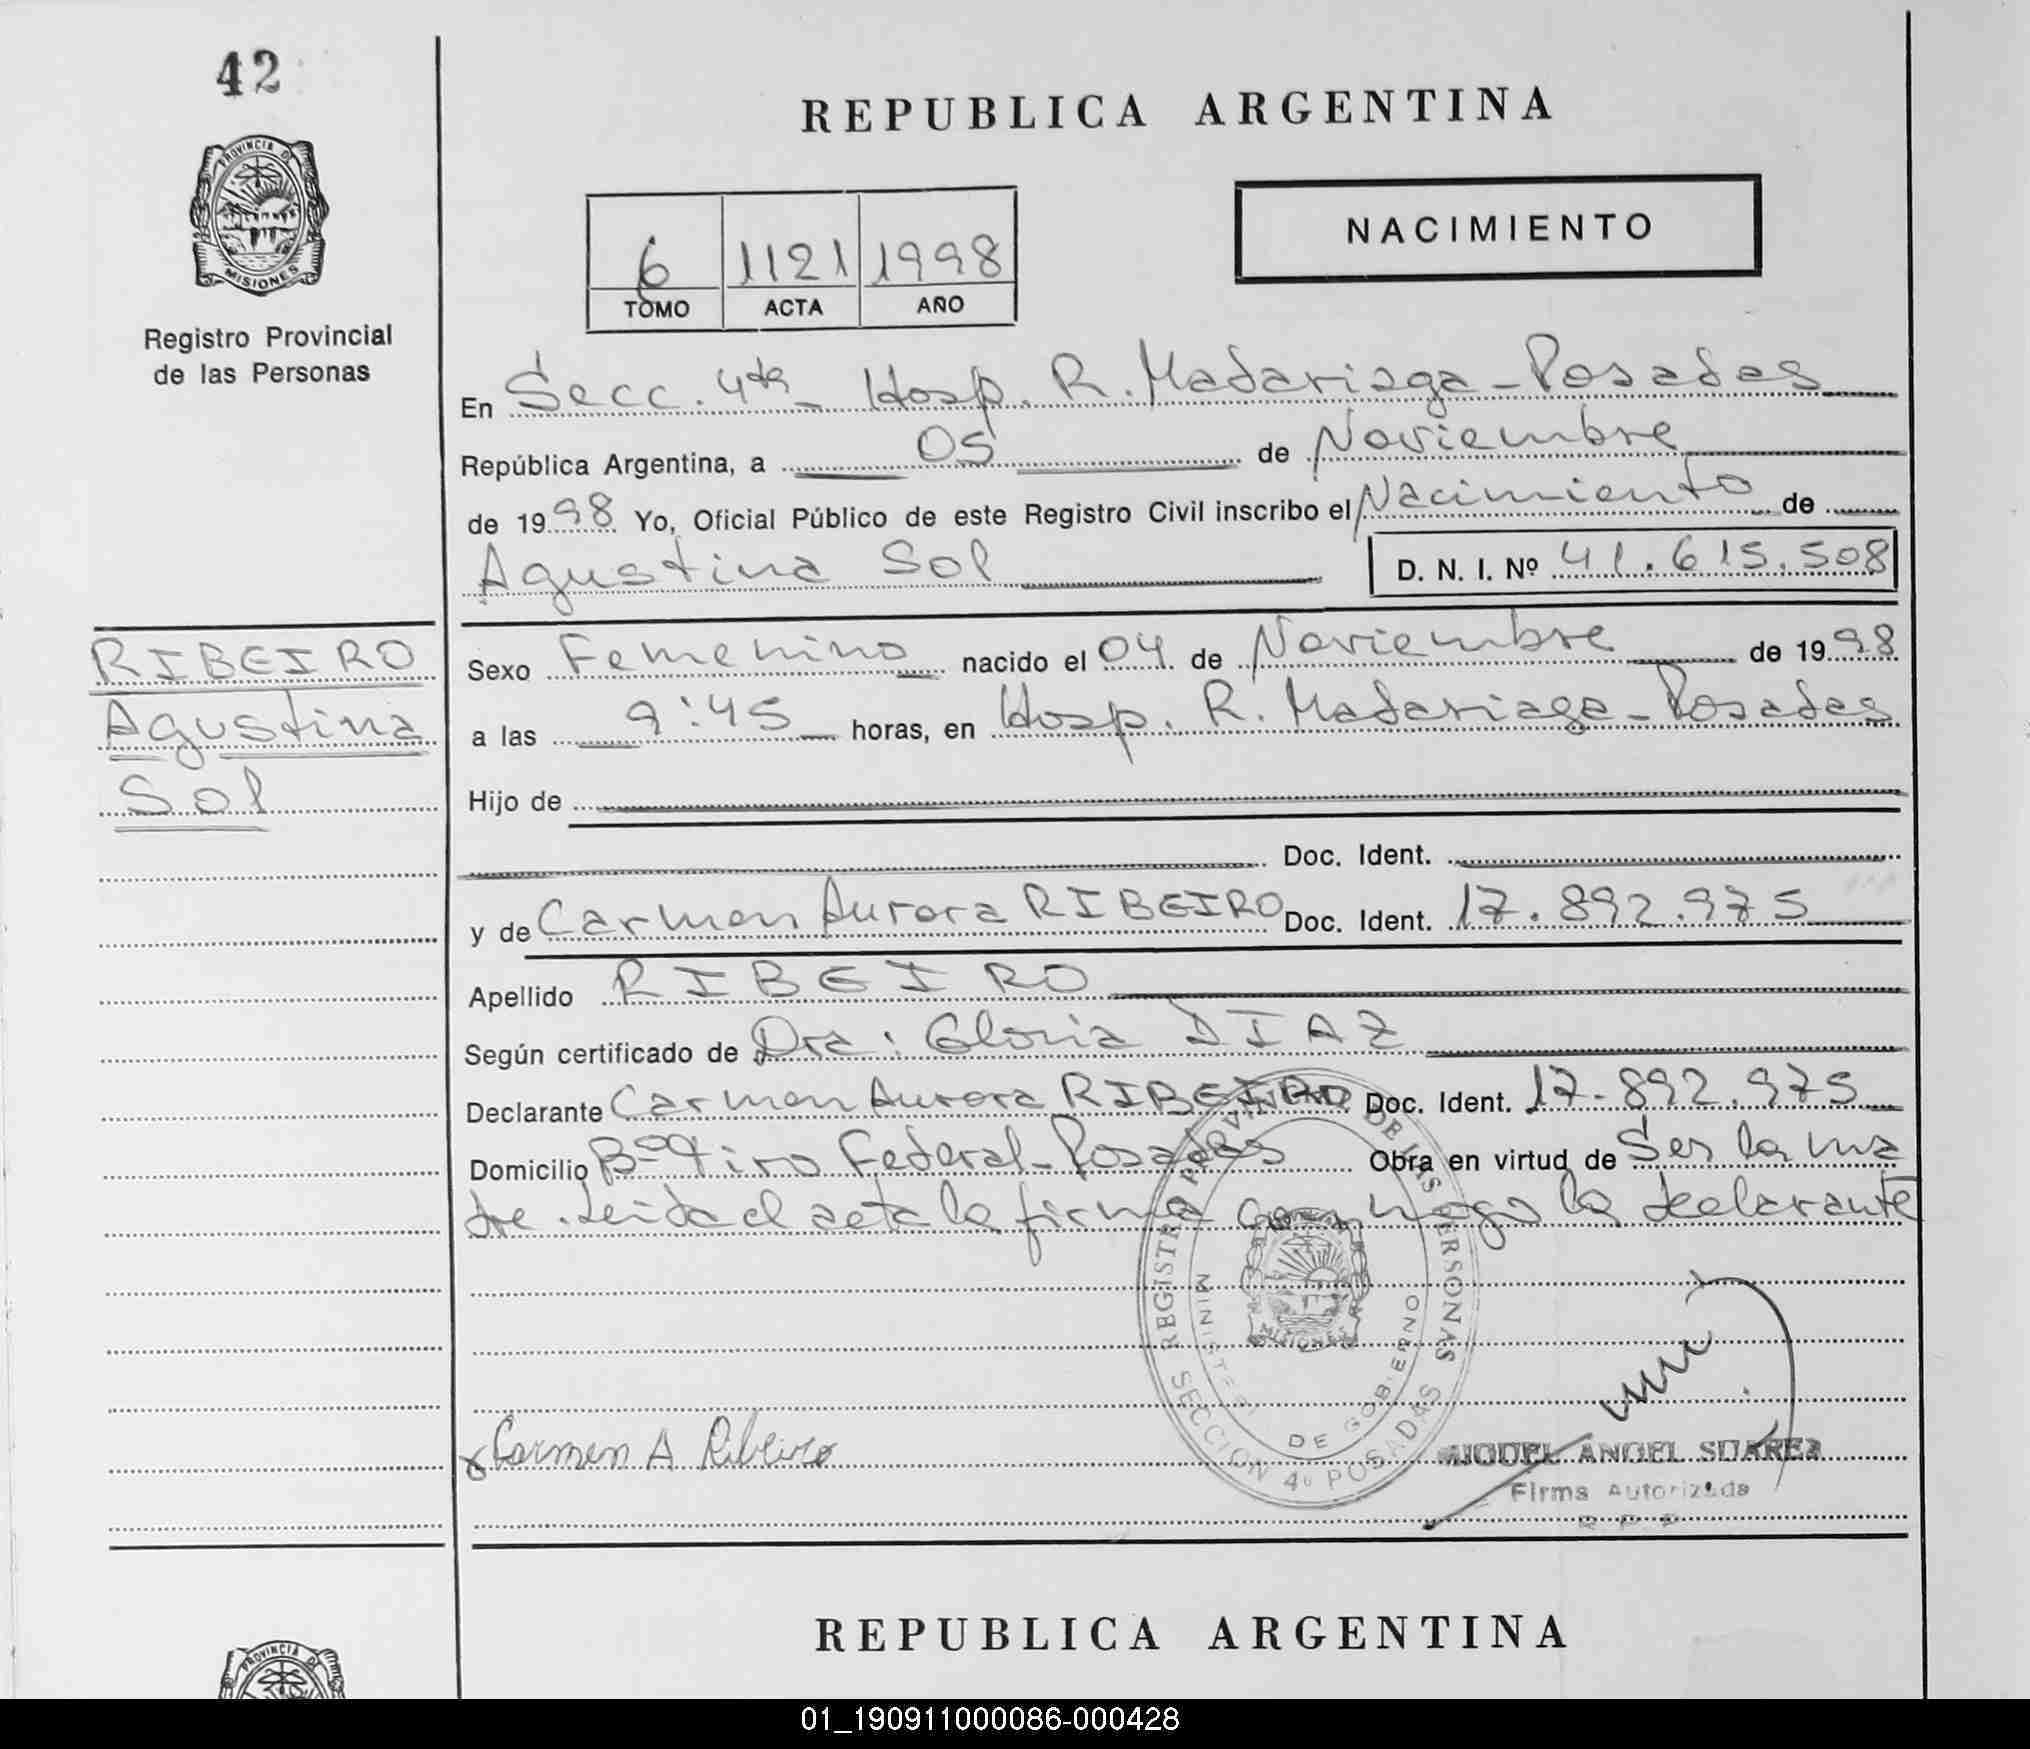 42
PROVINCIA DE
MISIONES
Registro Provincial
de las Personas
REPUBLICA ARGENTINA
NACIMIENTO
6 1121 1998
TOMO ACTA AÑO
En Secc. 4ta - Hosp. R. Madariaga - Posadas
República Argentina, a 05 de Noviembre
de 1998 Yo, Oficial Público de este Registro Civil inscribo el Nacimiento de
Agustina Sol D. N. I. Nº 41.615.508
RIBEIRO
Agustina
Sol
Sexo Femenino nacido el 04 de Noviembre de 1998
a las 9:45 horas, en Hosp. R. Madariaga - Posadas
Hijo de
Doc. Ident.
y de Carmen Aurora RIBEIRO Doc. Ident. 17.892.975
Apellido RIBEIRO
Según certificado de Dra: Gloria DIAZ
Declarante Carmen Aurora RIBEIRO Doc. Ident. 17.892.975
Domicilio Bº Tiro Federal - Posadas Obra en virtud de Ser la ma
dre. Leida el acta la firma conmigo la declarante
REGISTRO PROVINCIAL DE LAS PERSONAS
MINISTERI DE GOBIERNO
MISIONES
SECCION 4º POSADAS
Carmen A Ribeiro
MIGUEL ANGEL SUAREZ
Firma Autorizada
R. P. P.
REPUBLICA ARGENTINA
PROVINCIA DE
01_190911000086-000428